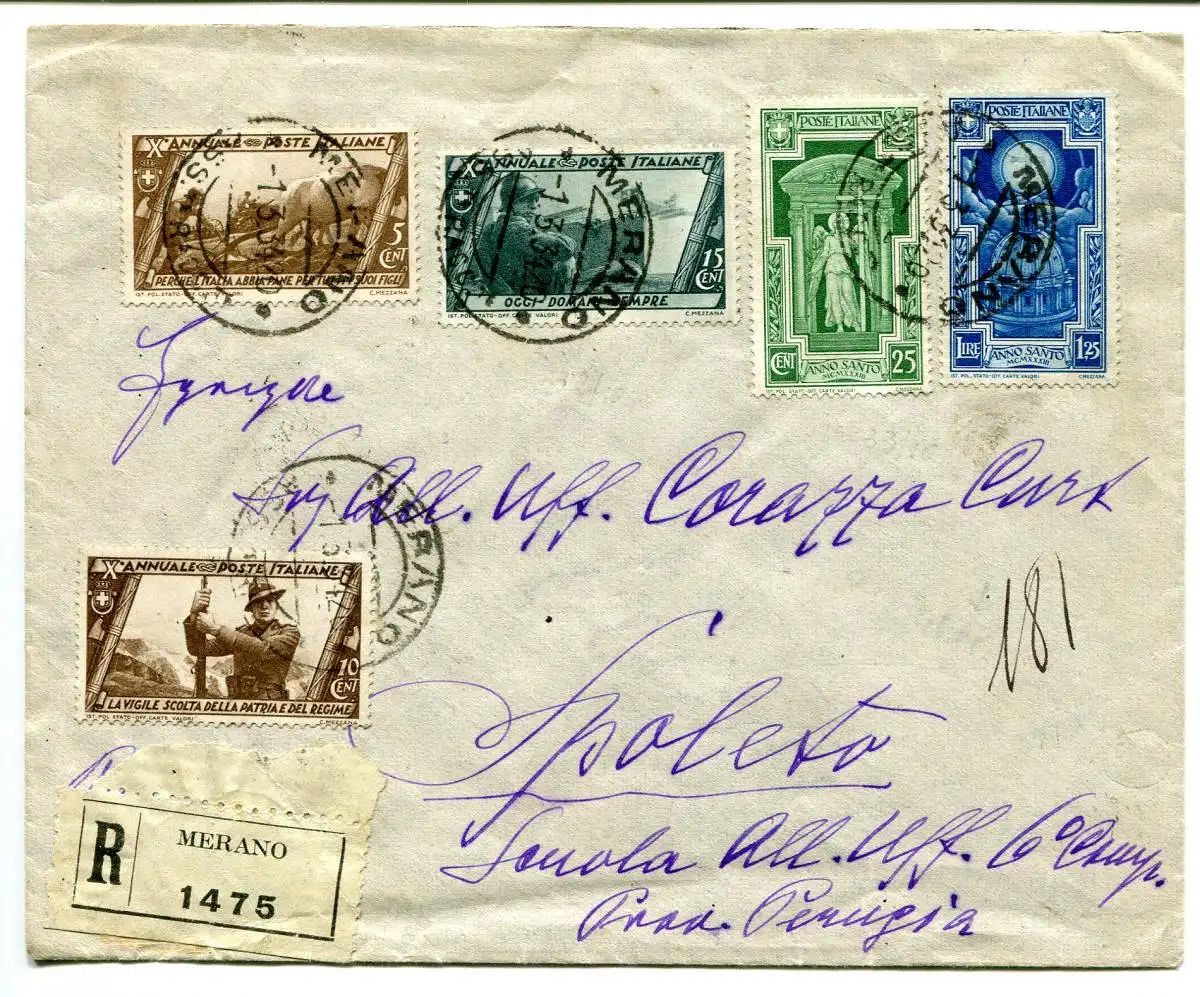 Xº ANNUALE POSTE ITALIANE
5 CENT
PERCHÈ L'ITALIA ABBIA PANE PER TUTTI I SUOI FIGLI
IST. POL. STATO-OFF. CARTE VALORI C. MEZZANA
MERANO
-1.3.34
Xº ANNUALE POSTE ITALIANE
15 CENT
OGGI-DOMANI-SEMPRE
IST. POL. STATO-OFF. CARTE VALORI C. MEZZANA
MERANO
-1.3.34
POSTE ITALIANE
CENT 25
ANNO SANTO
MCMXXXIII
IST. POL. STATO-OFF. CARTE VALORI C. MEZZANA
POSTE ITALIANE
LIRE 1,25
ANNO SANTO
MCMXXXIII
IST. POL. STATO-OFF. CARTE VALORI C. MEZZANA
MERANO
All. Uff. Corazza Curt
181
MERANO
Xº ANNUALE POSTE ITALIANE
10 CENT
LA VIGILE SCOLTA DELLA PATRIA E DEL REGIME
IST. POL. STATO-OFF. CARTE VALORI C. MEZZANA
Spoleto
Scuola All. Uff. 6º Comp.
Prov. Perugia
R MERANO
1475